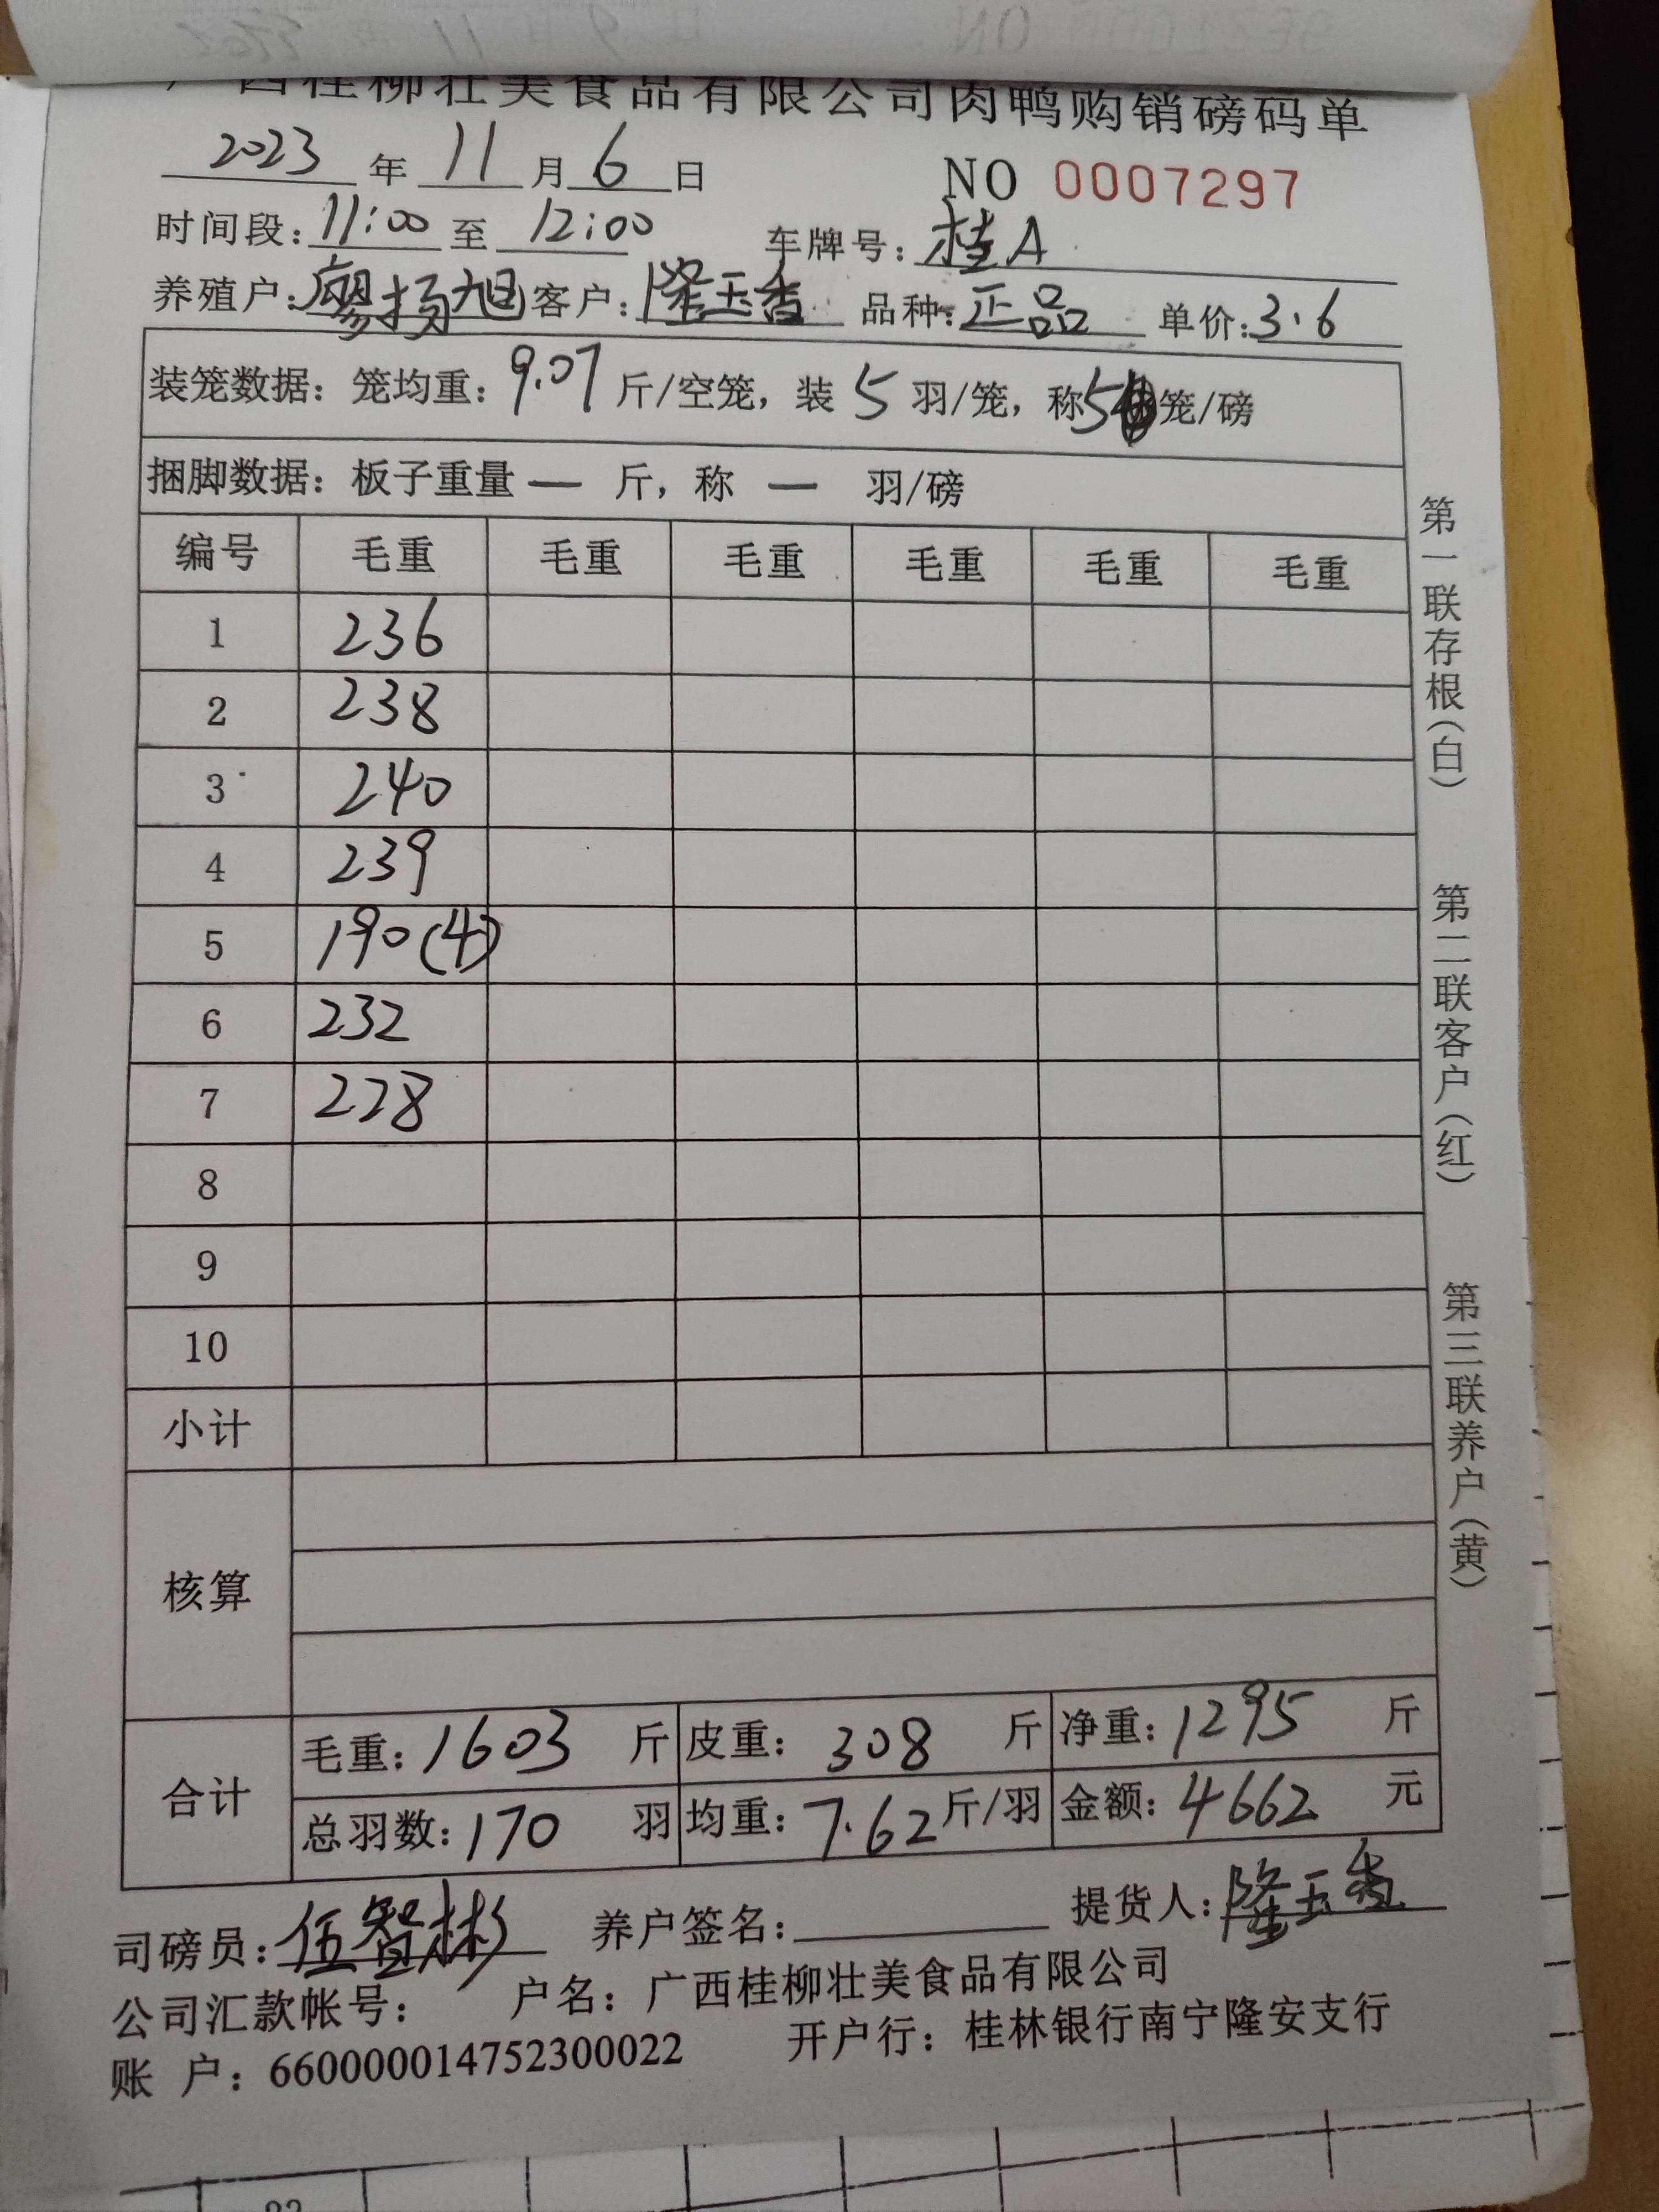 广西桂柳壮美食品有限公司肉鸭购销磅码单
2023年11月6日 NO 0007297
时间段:11:00至12:00 车牌号:桂A
养殖户:廖扬旭 客户:隆玉香 品种:正品 单价:3.6
装笼数据: 笼均重: 9.07斤/空笼, 装5羽/笼, 称5笼/磅
捆脚数据: 板子重量 — 斤, 称 — 羽/磅
编号 毛重 毛重 毛重 毛重 毛重 毛重
1 236
2 238
3 240
4 239
5 190(4)
6 232
7 228
8
9
10
小计
核算
合计
毛重: 1603 斤 皮重: 308 斤 净重: 1295 斤
总羽数: 170 羽 均重: 7.62斤/羽 金额: 4662 元
司磅员: 伍智彬 养户签名: 提货人: 隆玉香
公司汇款帐号: 户名: 广西桂柳壮美食品有限公司
账 户: 660000014752300022 开户行: 桂林银行南宁隆安支行
第一联存根(白)
第二联客户(红)
第三联养户(黄)